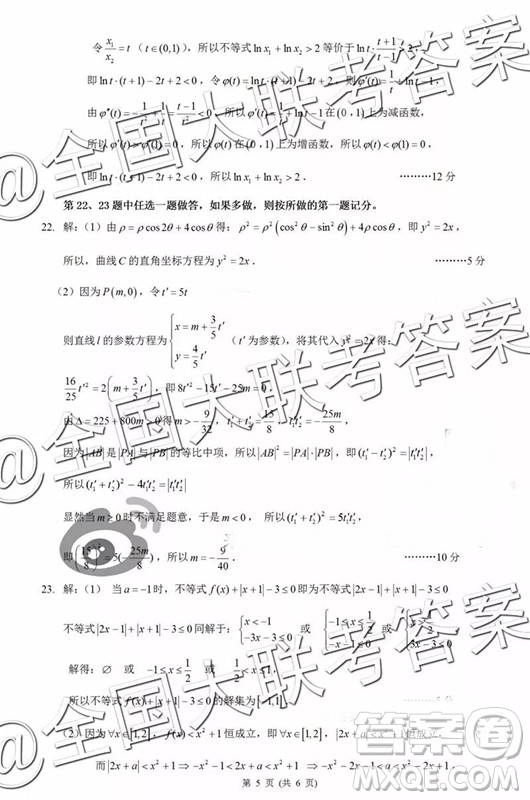 令x₁/x₂=t（t∈(0,1)），所以不等式ln x₁+ln x₂>2等价于ln t·(t+1)/(t-1)>2，
即ln t·(t+1)-2t+2<0，令φ(t)=ln t·(t+1)-2t+2，则φ′(t)=1/t+ln t-1，
由φ″(t)=-1/t²+1/t=(t-1)/t²<0，所以φ′(t)=1/t+ln t-1在(0，1)上为减函数，
所以φ′(t)>φ′(1)=0，所以φ(t)在(0，1)上为增函数，所以φ(t)<φ(1)=0，
即ln t·(t+1)-2t+2<0，所以ln x₁+ln x₂>2． ………12分
第22、23题中任选一题做答，如果多做，则按所做的第一题记分。
22．解：（1）由ρ=ρcos2θ+4cosθ得：ρ²=ρ²(cos²θ-sin²θ)+4ρcosθ，即y²=2x，
所以，曲线C的直角坐标方程为y²=2x． ………5分
（2）因为P(m,0)，令t′=5t
则直线l的参数方程为{x=m+3/5t′ y=4/5t′（t′为参数），将其代入y²=2x得：
16/25t′²=2(m+3/5t′)，即8t′²-15t′-25m=0，
由Δ=225+800m>0得m>-9/32，t₁′+t₂′=15/8，t₁′t₂′=-25m/8，
因为|AB|是|PA|与|PB|的等比中项，所以|AB|²=|PA|·|PB|，即(t₁′-t₂′)²=|t₁′t₂′|，
所以(t₁′+t₂′)²-4t₁′t₂′=|t₁′t₂′|
显然当m≥0时不满足题意，于是m<0， 所以(t₁′+t₂′)²=5t₁′t₂′，
即(15/8)²=5(-25m/8)，所以m=-9/40． ………10分
23．解：（1） 当a=-1时，不等式f(x)+|x+1|-3≤0即为不等式|2x-1|+|x+1|-3≤0
不等式|2x-1|+|x+1|-3≤0同解于：{x<-1 -3x-3≤0 或 {-1≤x≤1/2 -x-1≤0 或 {x>1/2 3x-3≤0
解得：∅ 或 -1≤x≤1/2 或 1/2<x≤1
所以不等式f(x)+|x+1|-3≤0的解集为[-1,1]． ………5分
（2）因为∀x∈[1,2]，f(x)<x²+1恒成立，即∀x∈[1,2]，|2x+a|<x²+1恒成立，
而|2x+a|<x²+1⇒-x²-1<2x+a<x²+1⇒-x²-2x-1<a<x²-2x+1，
第 5 页 (共 6 页)
@全国大联考答案
@全国大联考答案
@全国大联考答案
答案圈
MXQE.COM